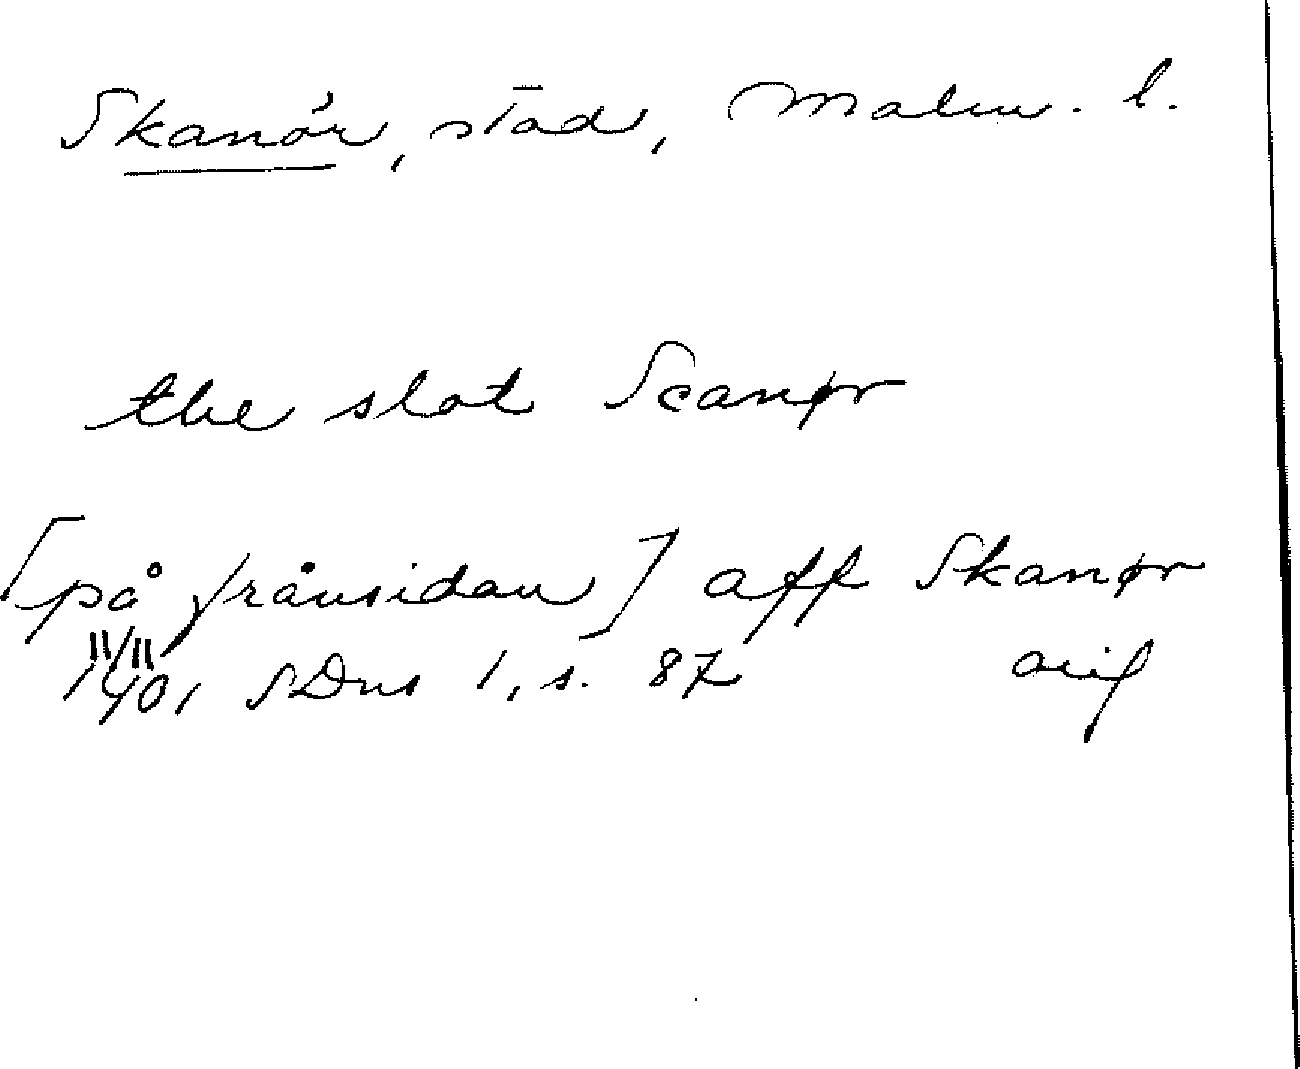 Skanör, stad, Malm. l.
the slot Scanør
[på frånsidan] aff Skanør
11/11
1401 SDns 1, s. 87 orig